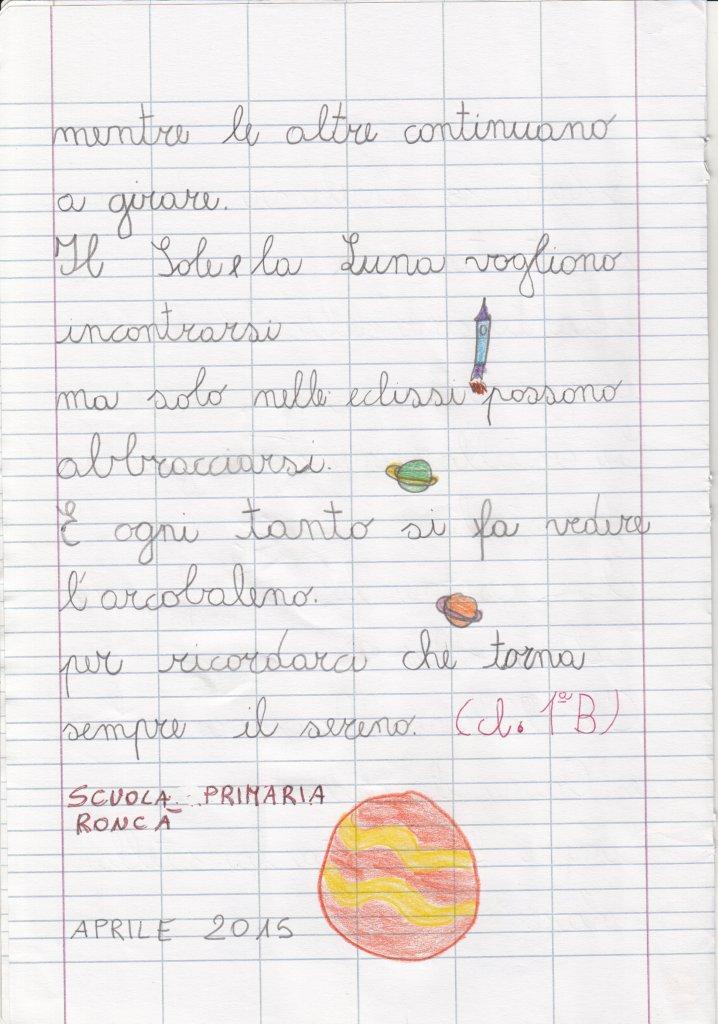 mentre le altre continuano
a girare.
Il Sole e la Luna vogliono
incontrarsi
ma solo nelle eclissi possono
abbracciarsi.
E ogni tanto si fa vedere
l'arcobaleno.
per ricordarci che torna
sempre il sereno. (cl. 1ª B)
SCUOLA PRIMARIA
RONCÀ
APRILE 2015